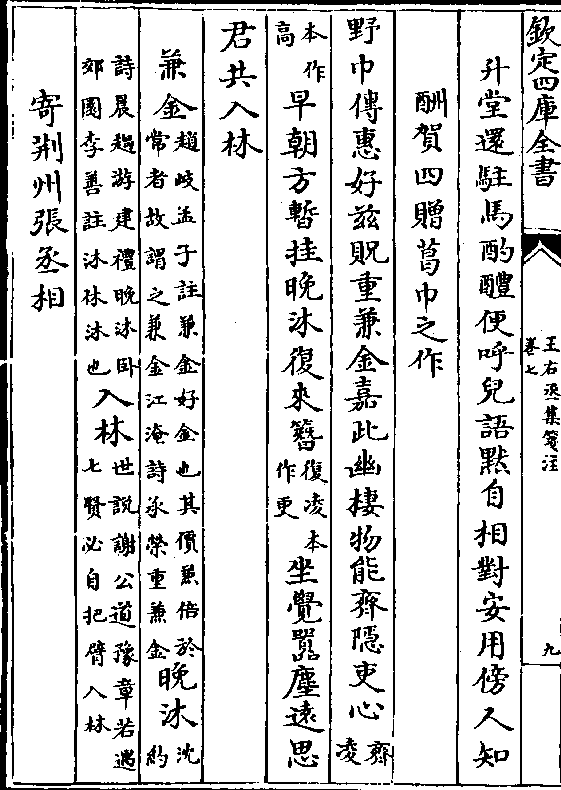 欽定四庫全書
王右丞集箋注
卷七
九
升堂還駐馬酌醴便呼兒語默自相對安用傍人知
酬賀四贈葛巾之作
野巾傳惠好兹貺重兼金嘉此幽棲物能齊隱吏心齊凌
本作高早朝方暫挂晚沐復來簪復凌本作更坐覺囂塵遠思
君共入林
兼金趙岐孟子註兼金好金也其價兼倍於常者故謂之兼金江淹詩承榮重兼金晚沐沈約
詩晨趨游建禮晚沐卧郊園李善註沐休沐也入林世說謝公道豫章若遇七賢必自把臂入林
寄荆州張丞相